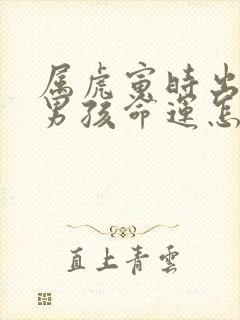 属虎寅时出
男孩命运怎
直上青雲